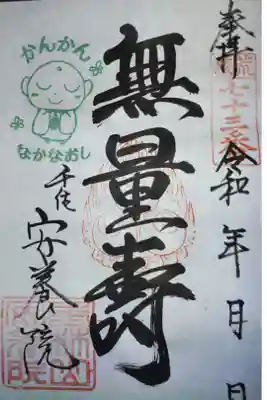 奉拝
七十三番
令和 年 月 日
無量寿
かんかん
なかなおし
千住
安養院